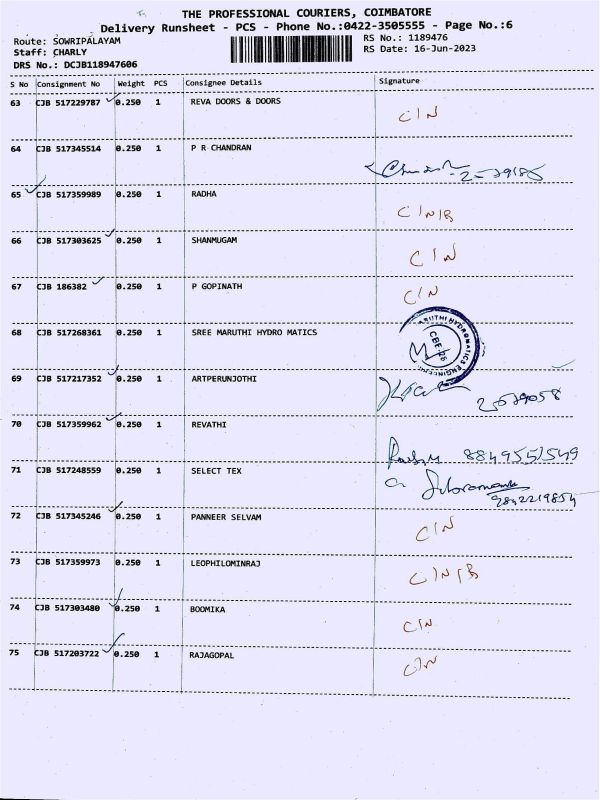 THE PROFESSIONAL COURIERS, COIMBATORE
Delivery Runsheet - PCS - Phone No.:0422-3505555 - Page No.:6
Route: SOWRIPALAYAM
RS No.: 1189476
Staff: CHARLY
RS Date: 16-Jun-2023
DRS No.: DCJB118947606
S No Consignment No Weight PCS Consignee Details Signature
63 CJB 517229787 0.250 1 REVA DOORS & DOORS C/N
64 CJB 517345514 0.250 1 P R CHANDRAN
65 CJB 517359989 0.250 1 RADHA C/N/B
66 CJB 517303625 0.250 1 SHANMUGAM C/N
67 CJB 186382 0.250 1 P GOPINATH C/N
68 CJB 517268361 0.250 1 SREE MARUTHI HYDRO MATICS
69 CJB 517217352 0.250 1 ARTPERUNJOTHI
70 CJB 517359962 0.250 1 REVATHI
71 CJB 517248559 0.250 1 SELECT TEX
9842219854
72 CJB 517345246 0.250 1 PANNEER SELVAM C/N
73 CJB 517359973 0.250 1 LEOPHILOMINRAJ C/N/B
74 CJB 517303480 0.250 1 BOOMIKA C/N
75 CJB 517203722 0.250 1 RAJAGOPAL C/N